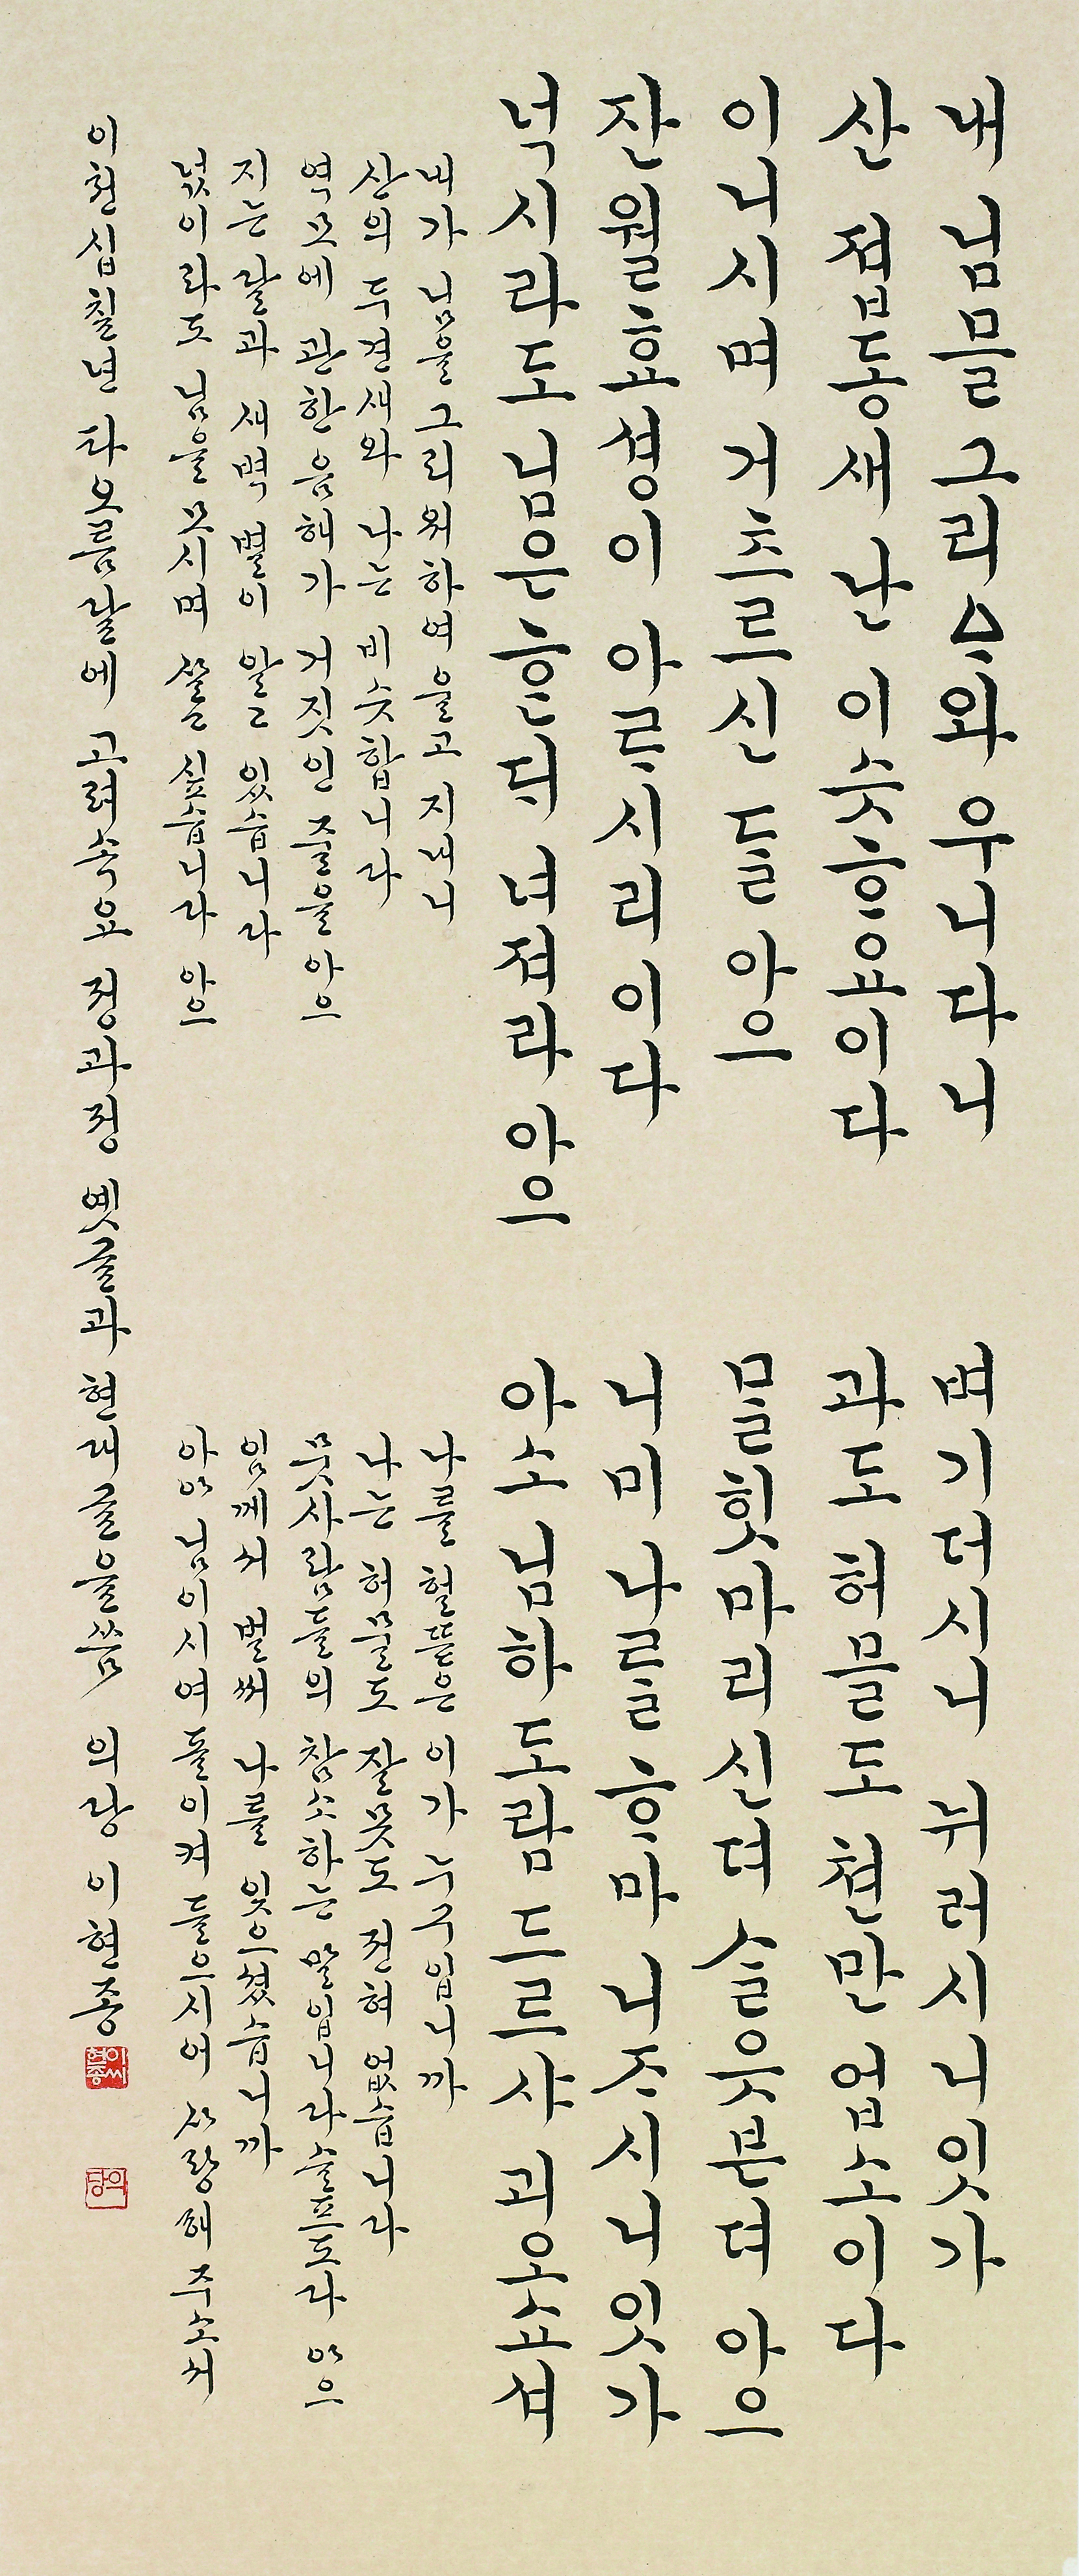 내 님믈 그리ᅀᆞ와 우니다니
산 졉동새 난 이슷ᄒᆞ요이다
이니시며 거츠르신 ᄃᆞᆯ 아으
잔월효셩이 아ᄅᆞ시리이다
넉시라도 님은 ᄒᆞᆫᄃᆡ 녀져라 아으
벼기더시니 뉘러시니잇가
과도 허믈도 쳔만 업소이다
ᄆᆞᆯ힛마리신뎌 ᄉᆞᆯ읏븐뎌 아으
니미 나ᄅᆞᆯ ᄒᆞ마 니ᄌᆞ시니잇가
아소 님하 도람 드르샤 괴오쇼셔
내가 님을 그리워하여 울고 지내니
산의 두견새와 나는 비슷합니다
역모에 관한 음해가 거짓인 줄을 아으
지는 달과 새벽 별이 알고 있습니다
넋이라도 님을 모시며 살고 싶습니다 아으
나를 헐뜯은 이가 누구입니까
나는 허물도 잘못도 전혀 없습니다
뭇사람들의 참소하는 말입니다 슬프도라 아으
임께서 벌써 나를 잊으셨습니까
아아 님이시여 돌이켜 들으시어 사랑해 주소서
이천십칠년 타오름달에 고려속요 정과정 옛글과 현대글을 씀 의당 이현종
이씨현종
의당